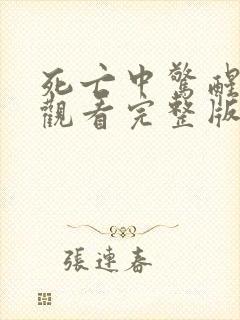 死亡中驚醒
觀看完整版
張連春